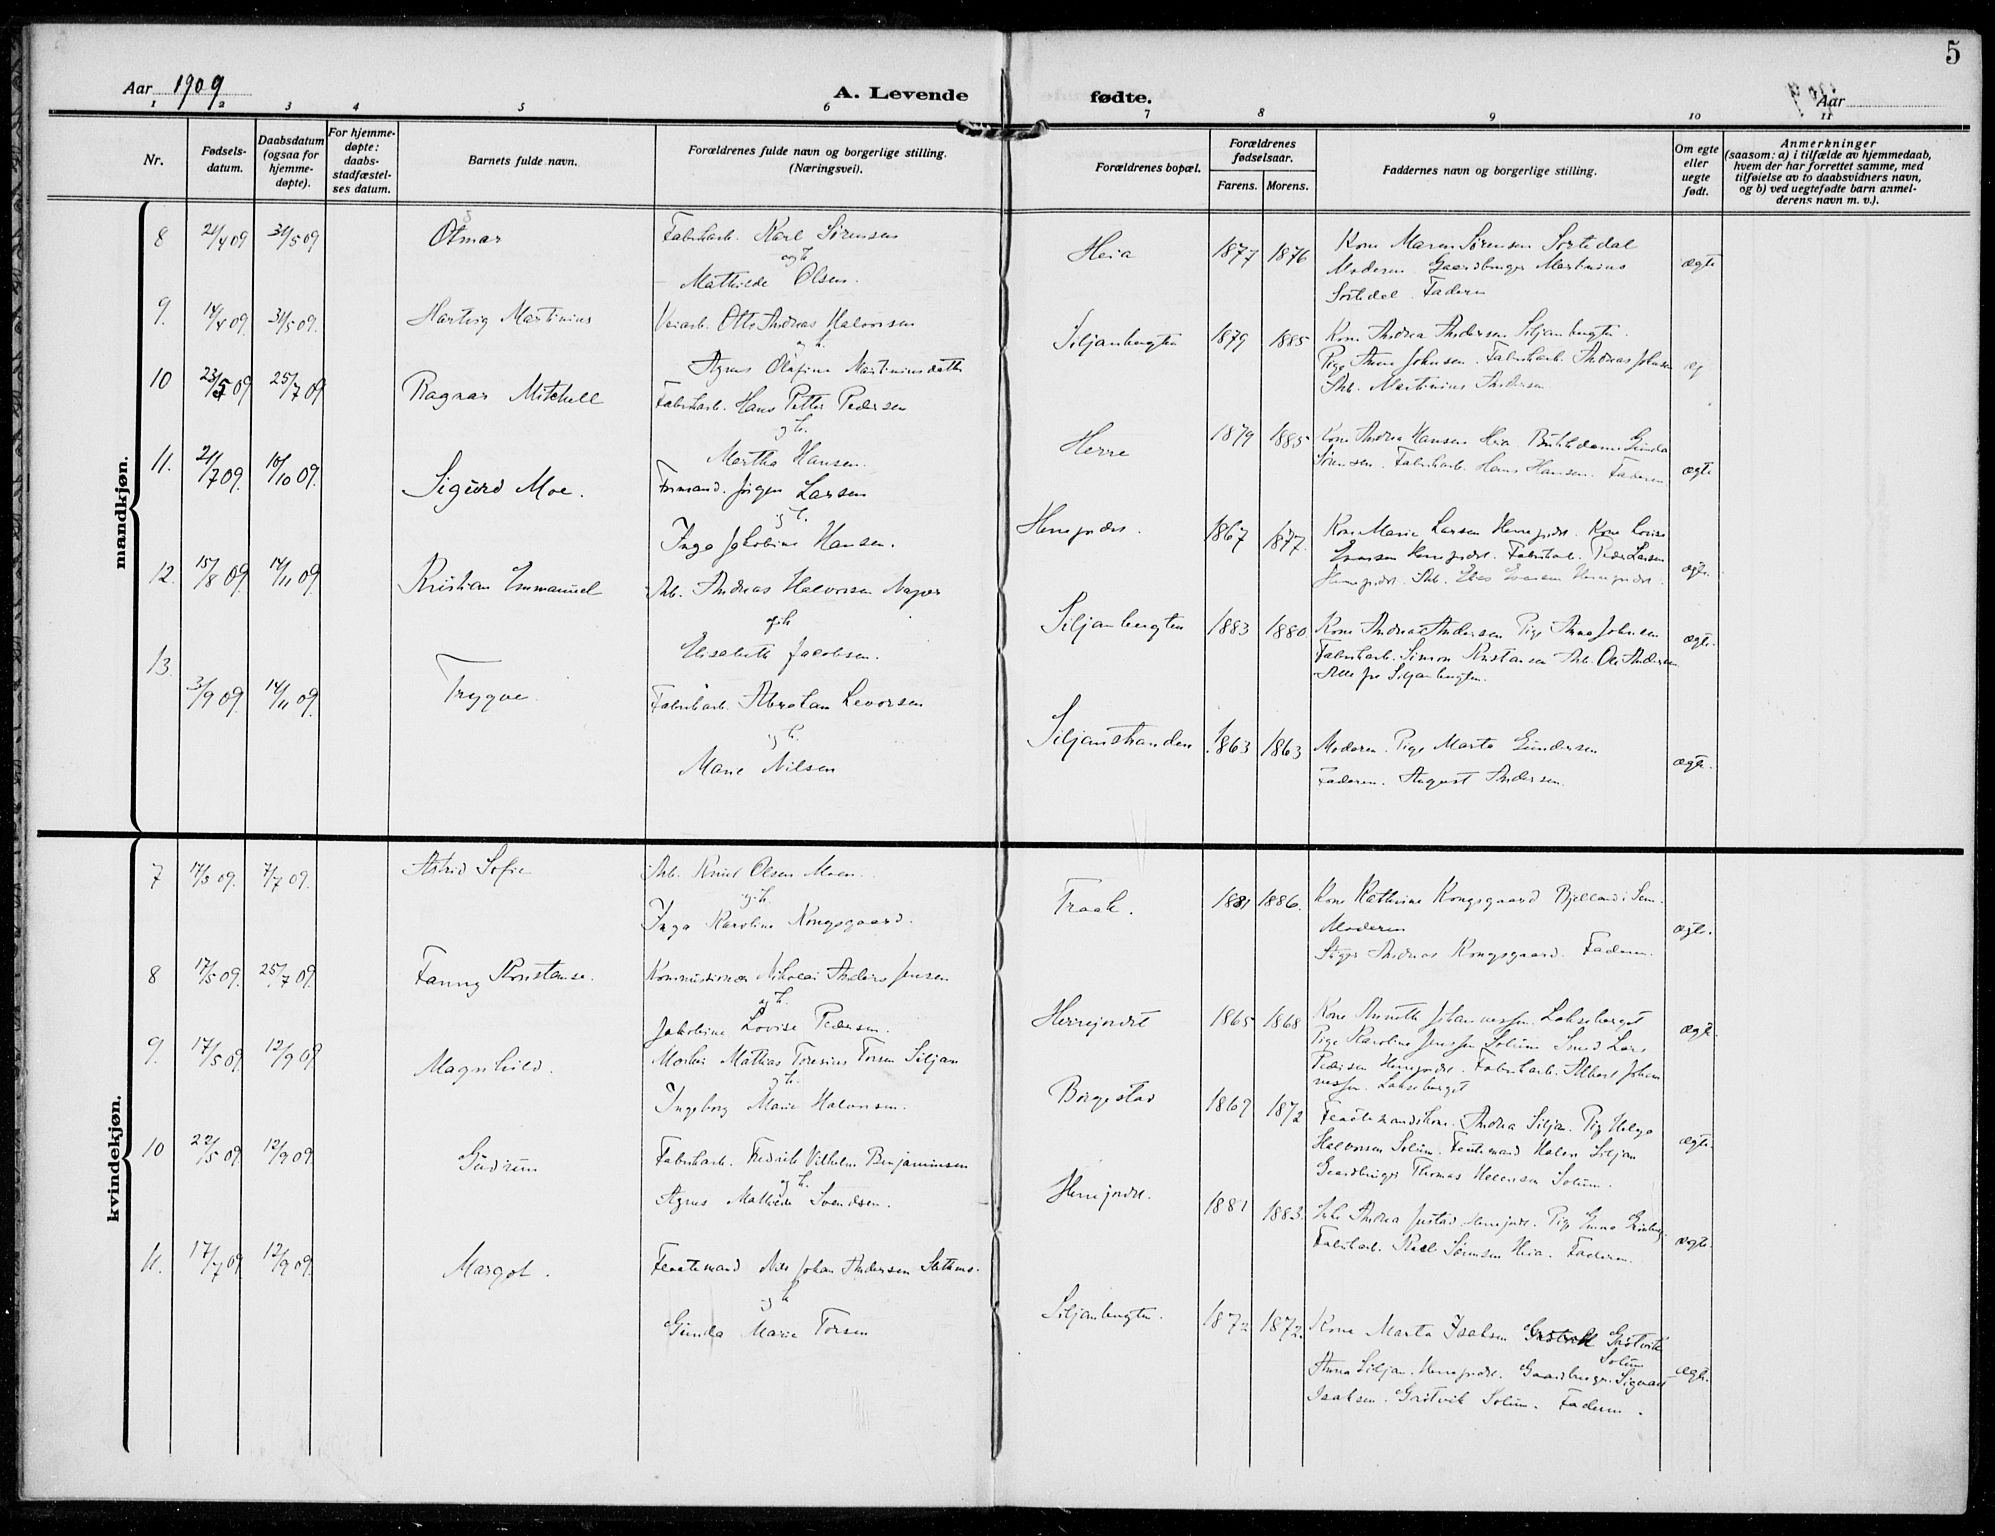 5
Aar 1909
A. Levende fødte.
Aar
1 2 3 4 5 6 7 8 9 10 11
Nr.
Fødsels-
datum.
Daabsdatum
(ogsaa for
hjemme-
døpte).
For hjemme-
døpte:
daabs-
stadfæstel-
ses datum.
Barnets fulde navn.
Forældrenes fulde navn og borgerlige stilling.
(Næringsvei).
Forældrenes bopæl.
Forældrenes
fødselsaar.
Farens. Morens.
Faddernes navn og borgerlige stilling.
Om egte
eller
uegte
født.
Anmerkninger
(saasom: a) i tilfælde av hjemmedaab,
hvem der har forrettet samme, med
tilføielse av to daabsvidners navn,
og b) ved uegtefødte barn anmel-
derens navn m. v.).
mandkjøn.
8 21/4 09 31/5 09 Osmar
Fabrikarb. Karl Sørensen
og h.
Mathilde Olsen.
Heia 1877 1876
Kone Maren Sørensen Sortedal
Moderen. Gaardbruger Martinius
Sortedal. Faderen
ægte
9. 14/4 09. 31/5 09. Hartvig Martinius
Veiarb. Otto Andreas Halvorsen
og h.
Agnes Olafine Martiniusdatter
Siljanbugten 1879 1885
Kone Andrea Andersen Siljanbugten.
Pige Anne Johnsen. Fabrikarb. Andreas Johnsen
Arb. Martinius Andersen
æg
10 23/5 09 25/7 09 Ragnar Mitchell
Fabrikarb. Hans Petter Pedersen
og h.
Martha Hansen.
Herre 1879 1885
Kone Andrea Hansen Heia. Butikdame Gunda
Sørensen. Fabrikarb. Hans Hansen. Faderen
ægte
11. 21/7 09. 10/10 09. Sigurd Moe.
Formand. Jørgen Larsen
og h.
Inga Jakobine Hansen.
Herrejordet. 1867 1877.
Kone Marie Larsen Herrejordet. Kone Lovise
Evensen Herrejordet. Fabrikarb. Peder Larsen
Herrejordet. Arb. Evensen Herrejordet.
ægte.
12. 15/8 09. 14/11 09. Kristian Emmanuel
Arb. Andreas Halvorsen
og h
Elisabeth Jacobsen.
Siljanbugten 1883 1880
Kone Andrea Andersen Pige Anna Johnsen
Fabrikarb. Simon Kristansen Arb. Ole Andersen
Alle fra Siljanbugten.
ægte.
13. 3/9 09. 14/11 09. Trygve.
Fabrikarb. Abraham Levorsen
og h.
Marie Nilsen
Siljanstranden 1863 1863
Moderen. Pige Marta Gundersen
Faderen. August Andersen.
ægte.
kvindekjøn.
7 17/3 09. 7/7 09. Astrid Sofie
Arb. Knut Olsen Moen.
og h.
Inga Karoline Kongsgaard.
Traak. 1881 1886.
Kone Kathrine Kongsgaard Bjelland i Sem.
Moderen
Andreas Kongsgaard. Faderen.
ægte.
8 17/5 09. 25/7 09. Fanny Konstanse.
Kommissionær Nikolai Anders Jensen
og h.
Jakobine Lovise Pedersen.
Herrejordet 1865 1868
Kone Anneth Johannessen. Lakseberget
Pige Karoline Jenssen Solum Smed Lars
Pedersen Herrejordet. Fabrikarb. Albert Johan
nessen. Lakseberget
ægte.
9. 17/5 09 12/9 09 Magnhild.
Mathias Torsen Siljan
og h.
Ingeborg Marie Halvorsen.
Borgestad 1869 1872
Fløtemandskone. Andrea Siljan. Pige Helga
Halvorsen Solum. Fløtemand Halvor Siljan
Gaardbruger Thomas Solum.
ægte.
10 22/5 09 12/9 09. Gudrun
Fabrikarb. Fredrik Vilhelm Benjaminsen
og h.
Agnes Mathilde Svendsen.
Herrejordet. 1881 1883.
Andrea Justad Herrejordet. Pige Emma
Fabrikarb. Karl Sørensen Heia. Faderen.
ægte.
11. 17/7 09 12/9 09. Margot.
Fløtemand Nils Johan Andersen
og h
Gunda Marie Torsen
Siljanbugten. 1872 1872.
Kone Marta Isaksen Grøtvik
Solum
Anna Siljan. Herrejordet. Gaardbruger. Sigvart
Isaksen. Grøtvik Solum. Faderen.
ægte.